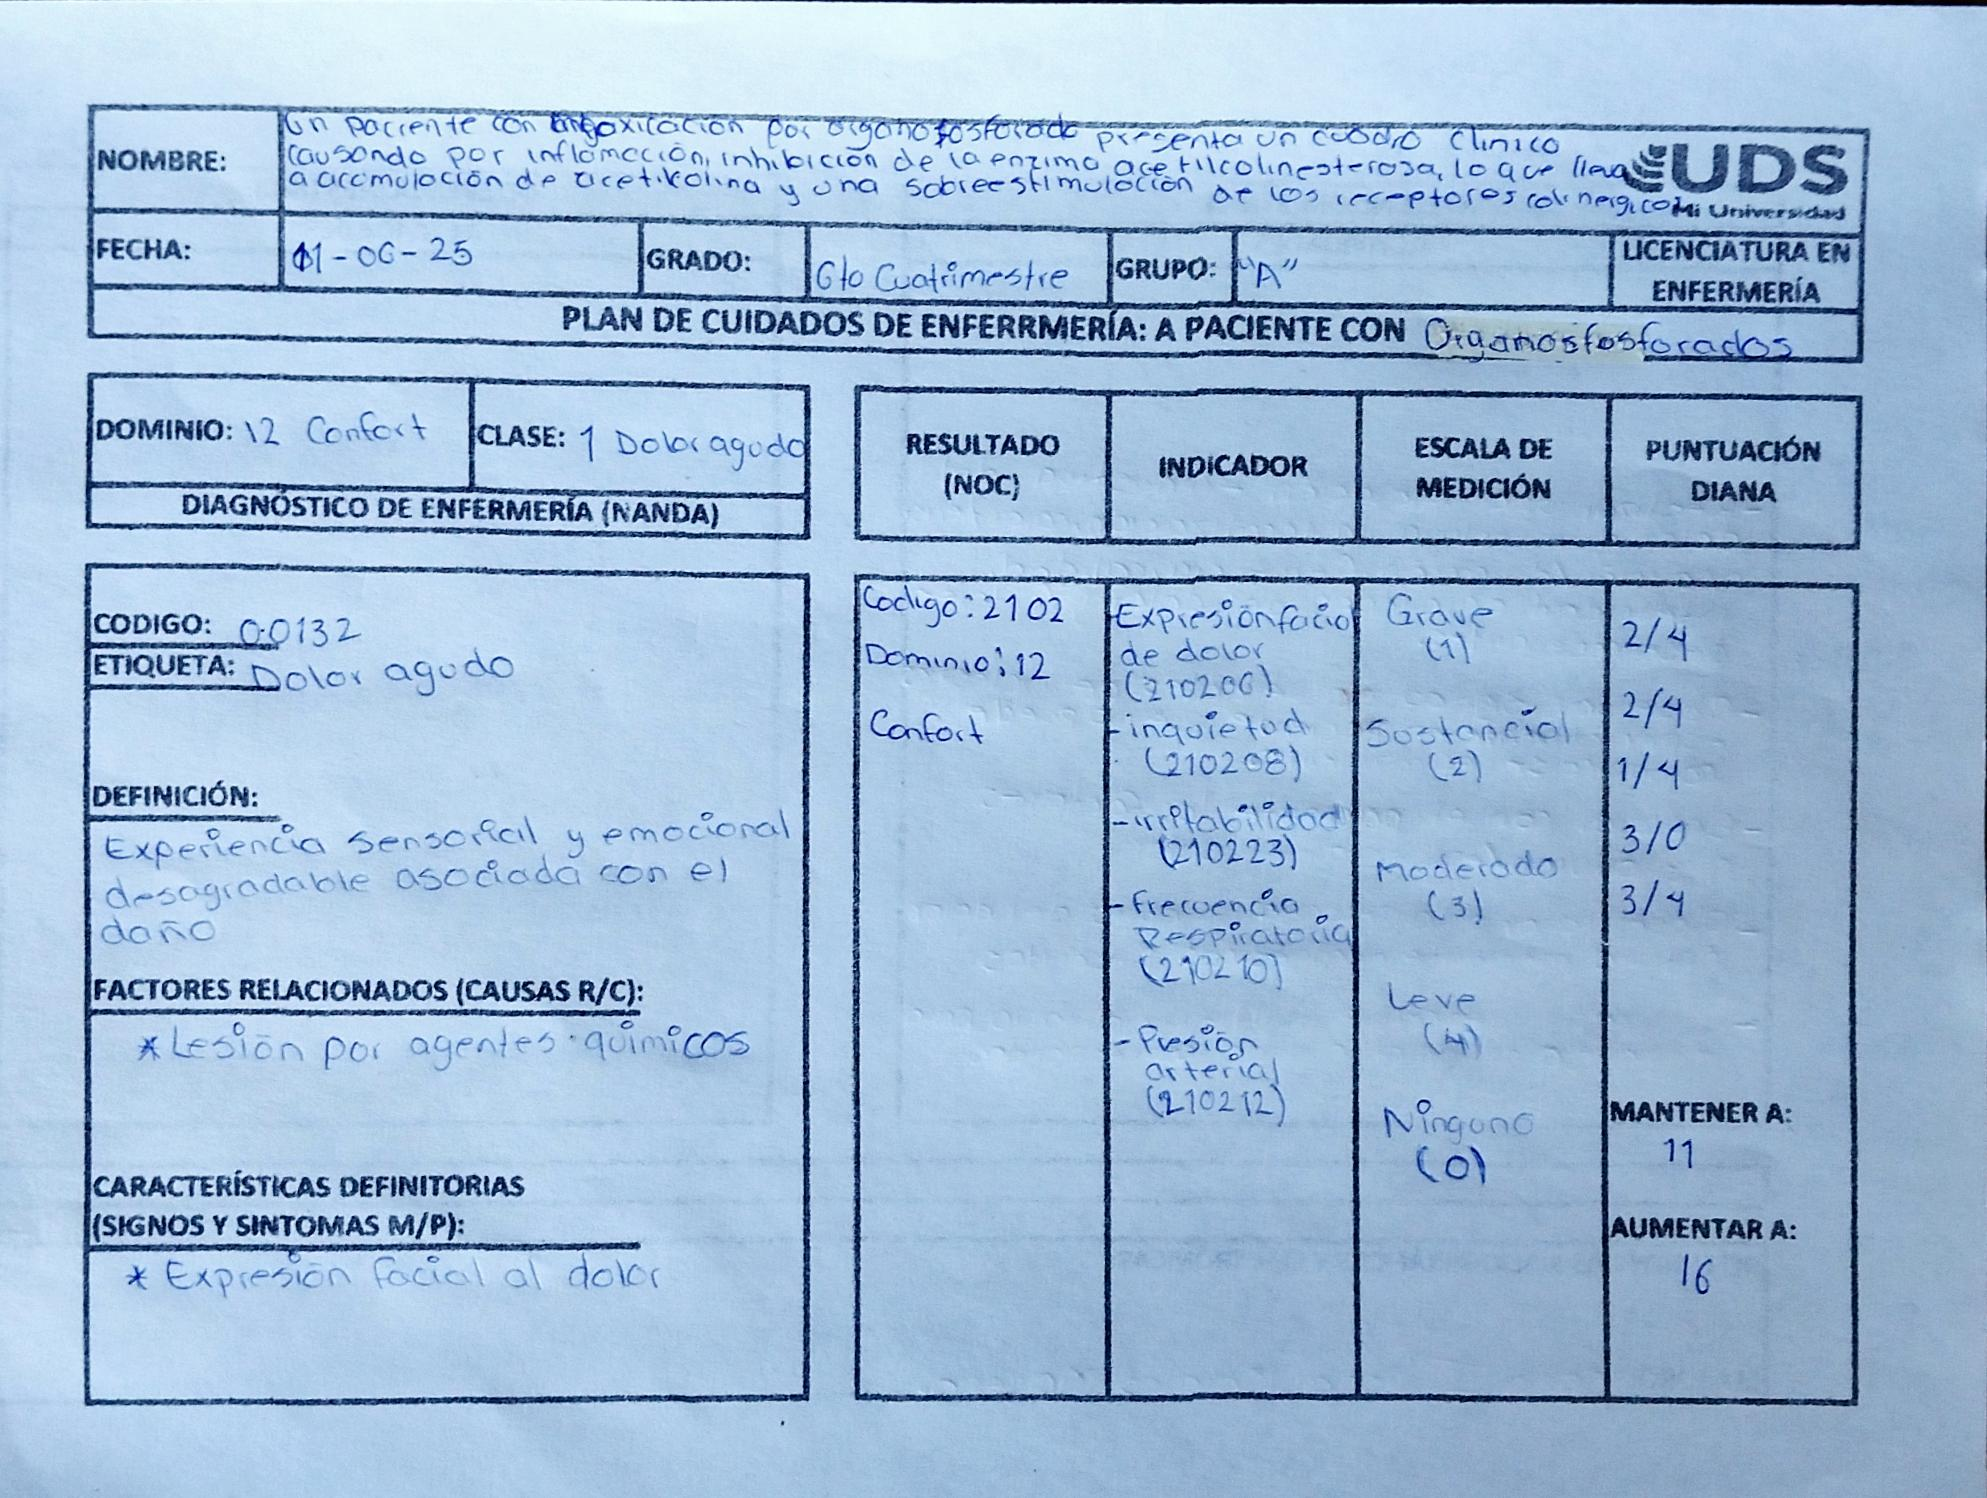 NOMBRE:
Un paciente con intoxicación por organofosforado presenta un cuadro clinico
causando por inflamación, inhibición de la enzima acetilcolinesterasa, lo que lleva
a acomulación de acetilcolina y una sobreestimulación de los receptores colinergicos
UDS
Mi Universidad
FECHA: 01-06-25 GRADO: 6to Cuatrimestre GRUPO: "A" LICENCIATURA EN
ENFERMERÍA
PLAN DE CUIDADOS DE ENFERRMERÍA: A PACIENTE CON Organosfosforados
DOMINIO: 12 Confort CLASE: 1 Dolor agudo
DIAGNÓSTICO DE ENFERMERÍA (NANDA)
CODIGO: 00132
ETIQUETA: Dolor agudo
DEFINICIÓN:
Experiencia sensorial y emocional
desagradable asociada con el
daño
FACTORES RELACIONADOS (CAUSAS R/C):
* Lesión por agentes quimicos
CARACTERÍSTICAS DEFINITORIAS
(SIGNOS Y SINTOMAS M/P):
* Expresión facial al dolor
RESULTADO
(NOC)
INDICADOR
ESCALA DE
MEDICIÓN
PUNTUACIÓN
DIANA
Codigo: 2102
Dominio: 12
Confort
Expresión facial
de dolor
(210206)
- inquietud
(210208)
- irritabilidad
(210223)
- Frecuencia
Respiratoria
(210210)
- Presión
arterial
(210212)
Grave
(1)
Sustancial
(2)
Moderado
(3)
Leve
(4)
Ninguno
(0)
2/4
2/4
1/4
3/0
3/4
MANTENER A:
11
AUMENTAR A:
16